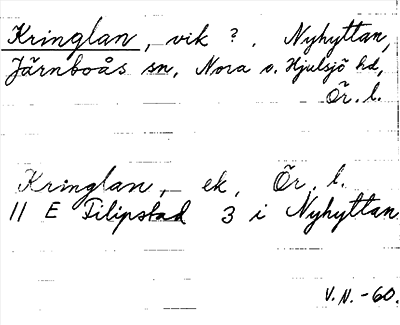 Kringlan, vik ?. Nyhyttan,
Järnboås sn, Nora o. Hjulsjö hd,
Ör. l.
Kringlan, ek, Ör. l.
11 E Filipstad 3 i Nyhyttan
V.N. -60.